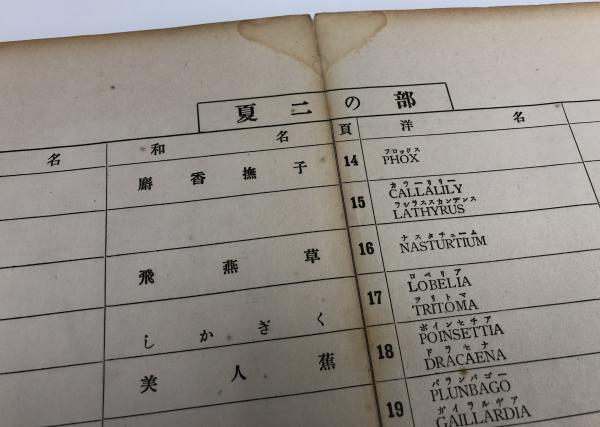 夏二の部
名
和名
頁
洋名
麝香撫子
飛燕草
しかぎく
美人蕉
14
フロックス
PHOX
15
カラーリリー
CALLALILY
ラシラススカンデンス
LATHYRUS
16
ナスタチューム
NASTURTIUM
17
ロベリア
LOBELIA
ツリトマ
TRITOMA
18
ポインセチア
POINSETTIA
ドラセナ
DRACAENA
19
パランバゴー
PLUNBAGO
ガイラルヂア
GAILLARDIA